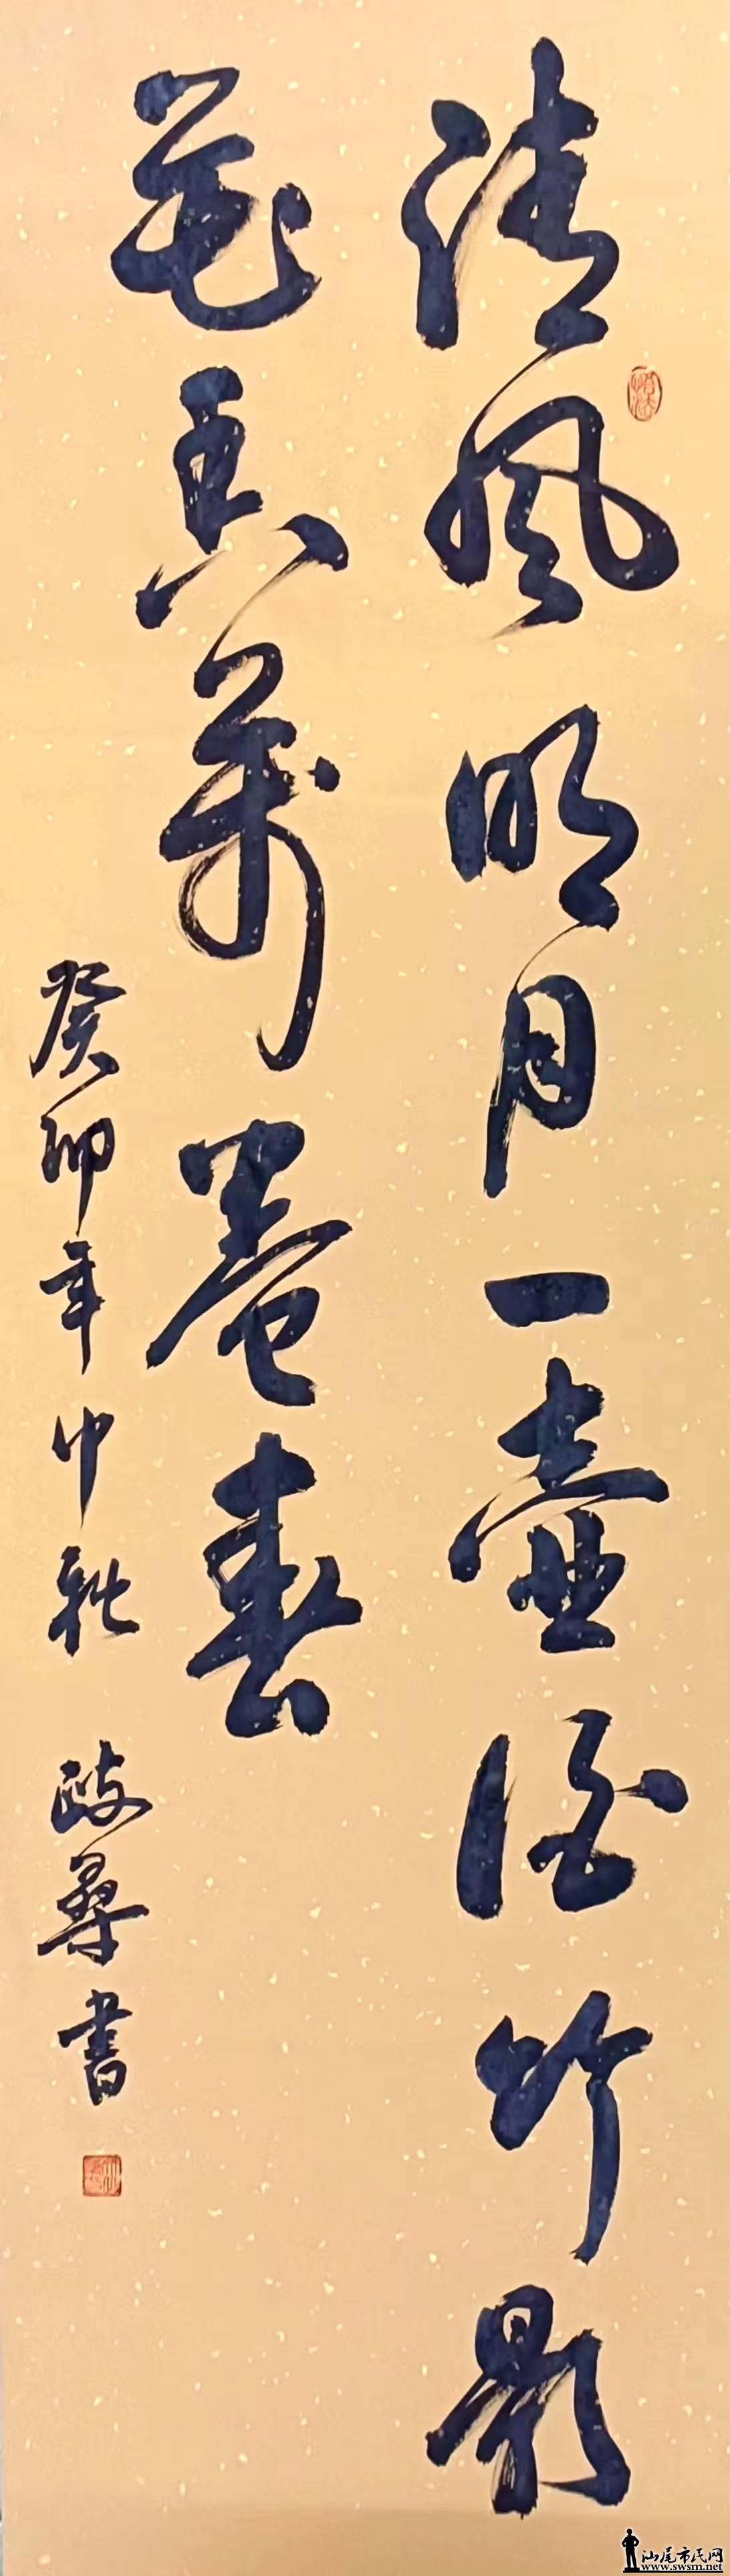 清風明月一壶酒竹影
花香萬卷春
癸卯年中秋 政尋書
汕尾市民网
www.swsm.net